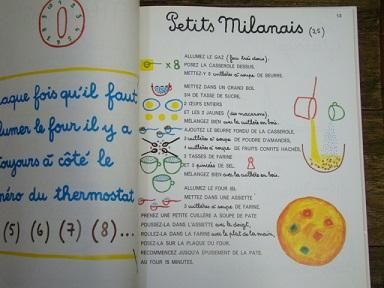 0
aque fois qu'il faut
lumer le four il y a
toujours à côté le
néro du thermostat
(5) (6) (7) (8)...
13
Petits Milanais (25)
ALLUMEZ LE GAZ (feu très doux).
POSEZ LA CASSEROLE DESSUS.
x 8
METTEZ-Y 8 cuillères à soupe DE BEURRE.
METTEZ DANS UN GRAND BOL
3/4 DE TASSE DE SUCRE,
2 ŒUFS ENTIERS
ET LES 2 JAUNES (des macarons),
MÉLANGEZ BIEN avec la cuillère en bois.
AJOUTEZ LE BEURRE FONDU DE LA CASSEROLE,
3 cuillères à soupe DE POUDRE D'AMANDES,
4 cuillères à soupe DE FRUITS CONFITS HACHÉS,
3 TASSES DE FARINE
ET 2 pincées DE SEL.
MÉLANGEZ BIEN avec la cuillère en bois.
8
ALLUMEZ LE FOUR (8).
METTEZ DANS UNE ASSIETTE
3 cuillères à soupe DE FARINE.
PRENEZ UNE PETITE CUILLÈRE A SOUPE DE PATE.
POUSSEZ-LA DANS L'ASSIETTE avec le doigt,
ROULEZ-LA DANS LA FARINE avec le plat de la main,
POSEZ-LA SUR LA PLAQUE DU FOUR.
RECOMMENCEZ JUSQU'A ÉPUISEMENT DE LA PATE.
AU FOUR 15 MINUTES.